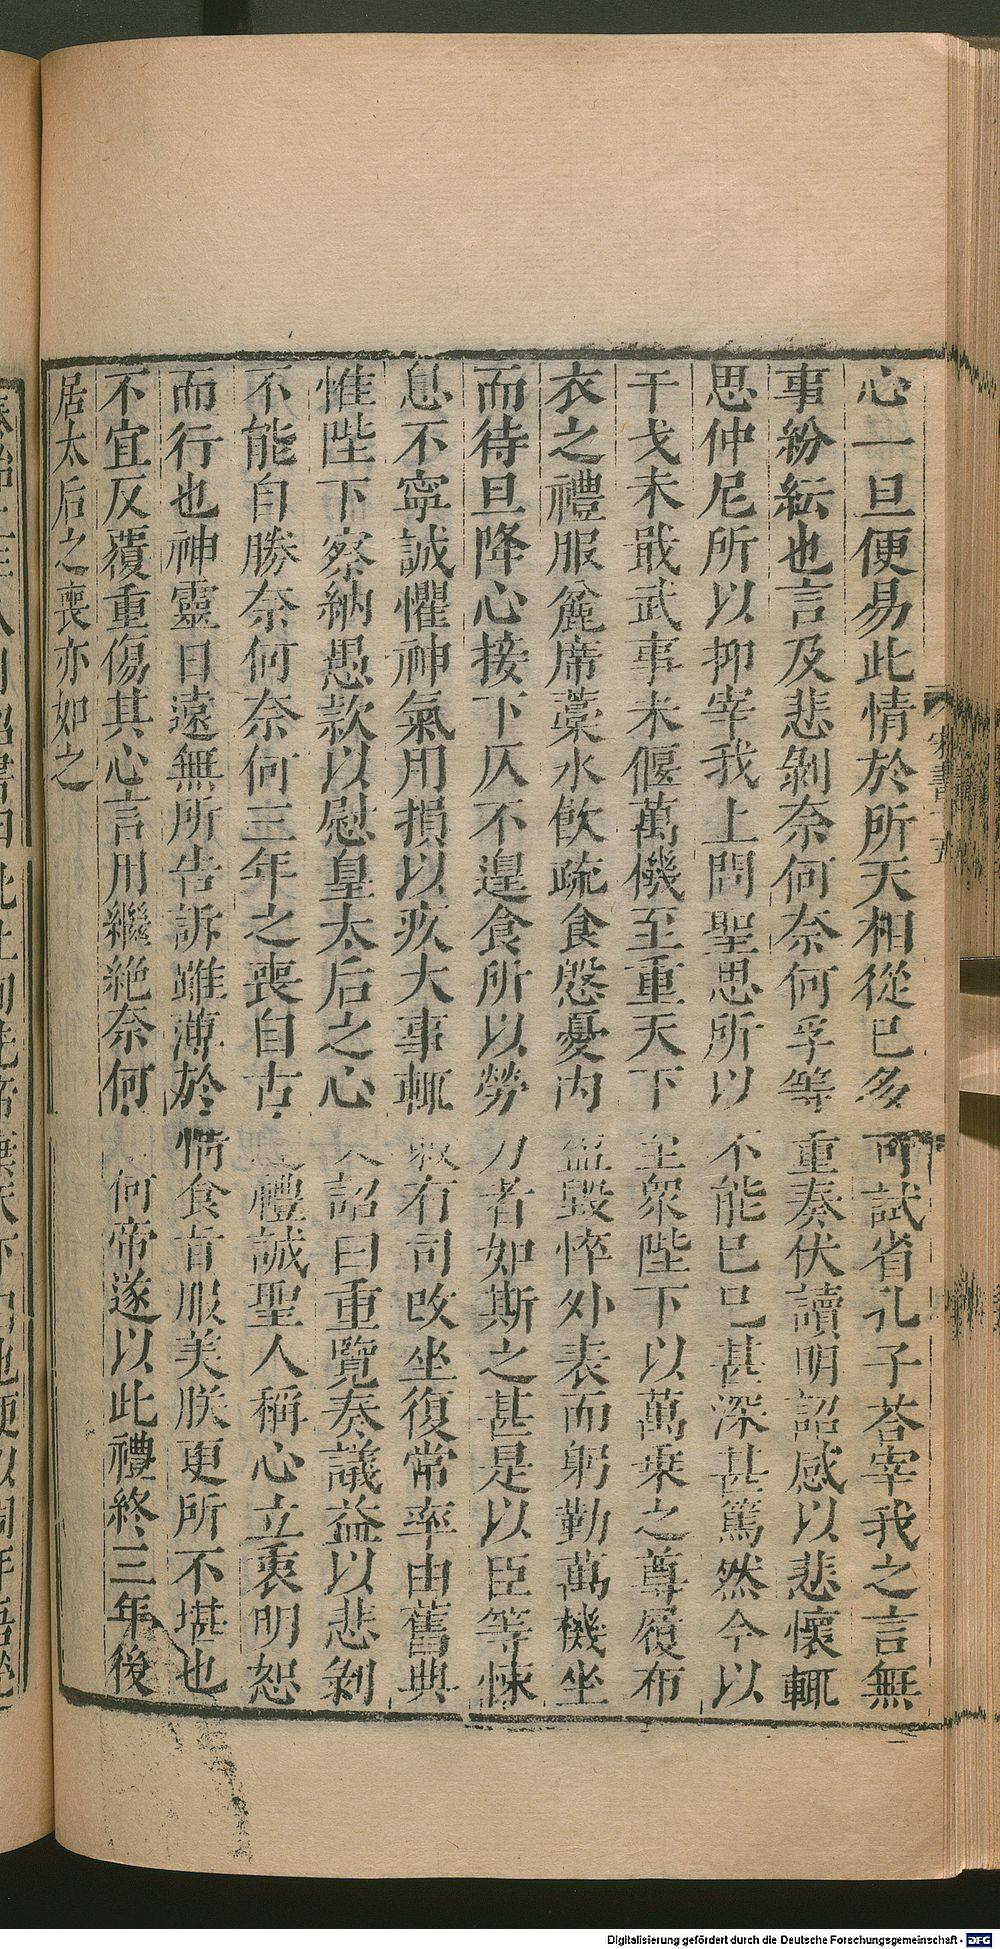 心一旦便易此情於所天相從已多可試省孔子荅宰我之言無
事紛紜也言及悲剝奈何奈何孚等重奏伏讀明詔感以悲懷輒
思仲尼所以抑宰我上問聖思所以不能已已甚深甚篤然今以
干戈未戢武事未偃萬機至重天下至衆陛下以萬乗之尊履布
衣之禮服麄席藁水飲疏食慇憂内盈毀悴外表而躬勤萬機坐
而待旦降心接下仄不遑食所以勞力者如斯之甚是以臣等悚
息不寧誠懼神氣用損以疚大事輒敕有司改坐復常率由舊典
惟陛下察納愚款以慰皇太后之心又詔曰重覽奏議益以悲剝
不能自勝奈何奈何三年之喪自古禮誠聖人稱心立衷明恕
而行也神靈日遠無所告訴雖薄於情食旨服美朕更所不堪也
不宜反覆重傷其心言用繼絶奈何何帝遂以此禮終三年後
居太后之喪亦如之
宋書十五
Digitalisierung gefördert durch die Deutsche Forschungsgemeinschaft - DFG